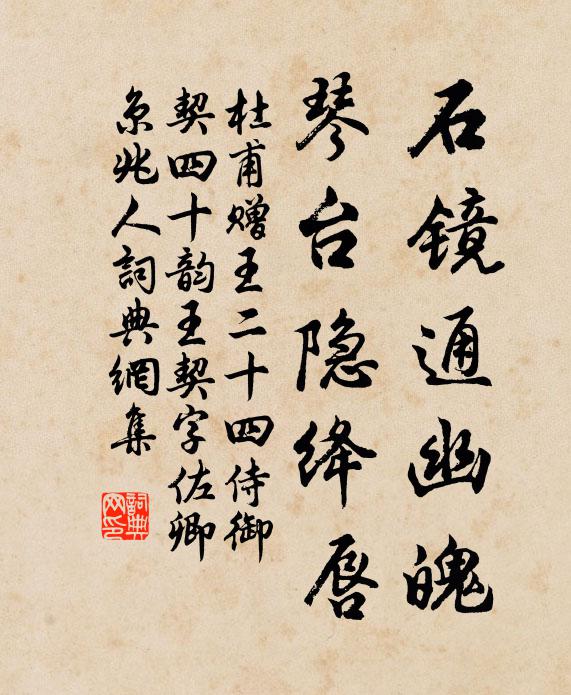 石镜通幽魄
琴台隐绛唇
杜甫赠王二十四侍御
契四十韵王契字佐卿
京兆人詞典網集
詞典
网印